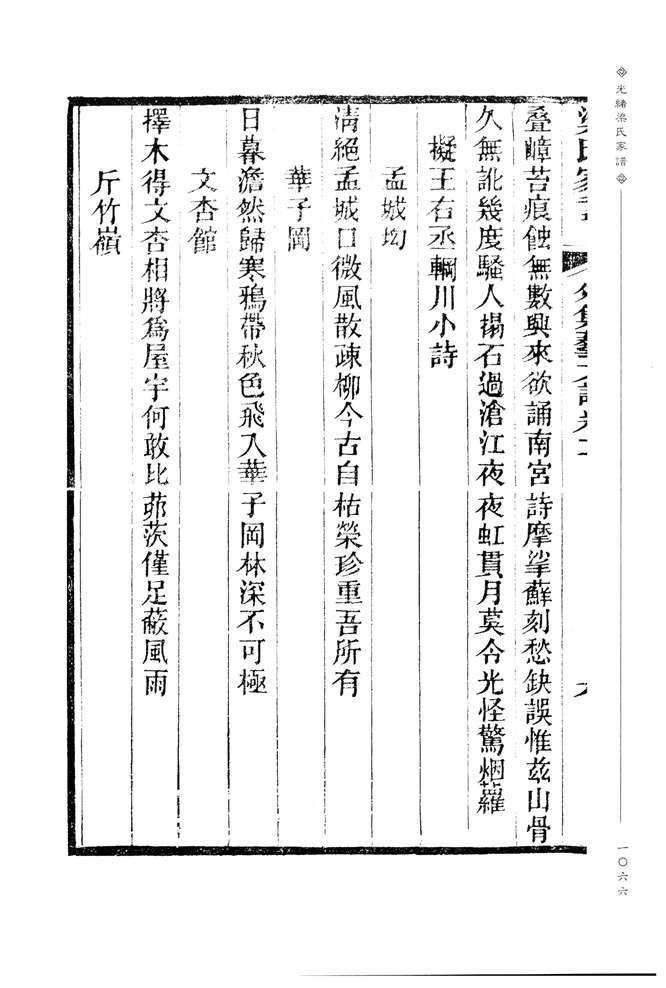 光緒梁氏家譜
一〇六六
疊嶂苔痕蝕無數興來欲誦南宮詩摩挲蘚刻愁缺誤惟茲山骨
久無訛幾度騷人搨石過滄江夜夜虹貫月莫令光怪驚烟蘿
擬王右丞輞川小詩
孟城坳
清絕孟城口微風散疎柳今古自枯榮珍重吾所有
華子岡
日暮澹然歸寒鴉帶秋色飛入華子岡林深不可極
文杏館
擇木得文杏相將爲屋宇何敢比茆茨僅足蔽風雨
斤竹嶺